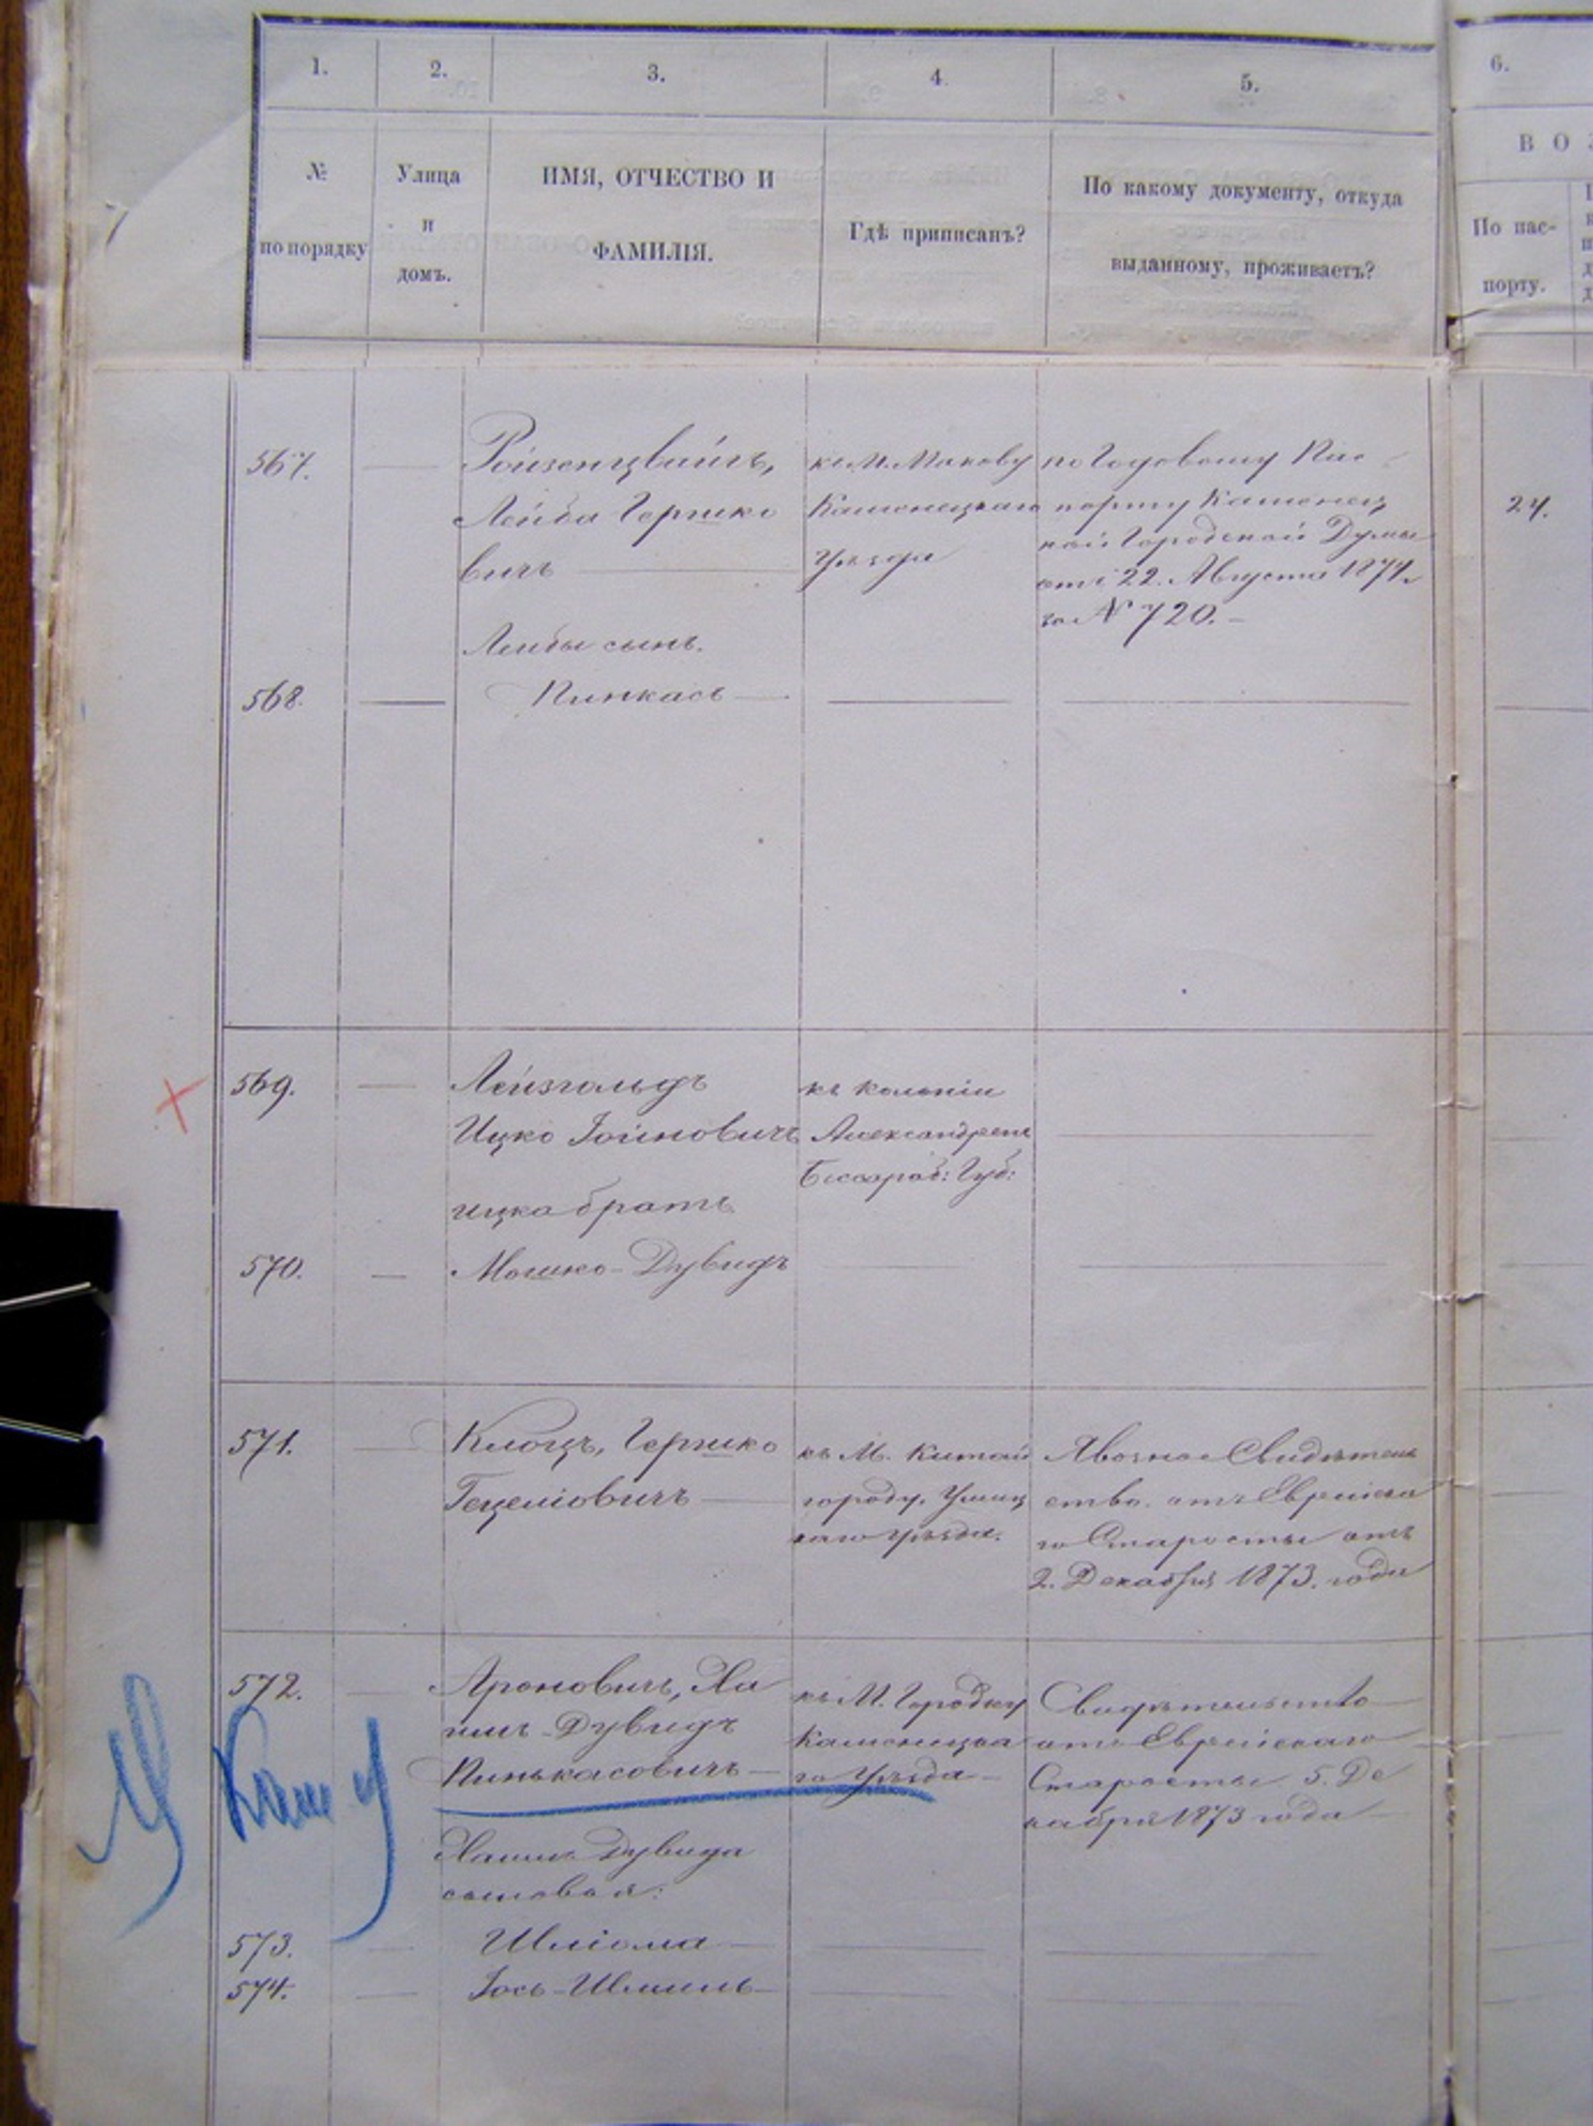 1.
2.
3.
4.
5.
6.
№
по порядку
Улица
и
домъ.
ИМЯ, ОТЧЕСТВО И
ФАМИЛІЯ.
Гдѣ приписанъ?
По какому документу, откуда
выданному, проживаетъ?
В О
По пас-
порту.
567.
Ройзенцвайгъ,
Лейба Гершко
вичъ
къ М. Макову
Каменецкаго
Уѣзда
по Годовому Пас
порту Каменец
кой Городской Думы
отъ 22. Августа 1874.
за № 720.
24.
Лейбы сынъ.
568.
Пинкасъ
569.
Лейзгольдъ
Ицко Іойновичъ
къ колоніи
Александрен
Бессараб: Губ:
ицка братъ
570.
Мошко-Дувидъ
571.
Клоцъ, Гершко
Гецеліовичъ
къ М. Китай
городу, Ушиц
каго Уѣзда.
Явочное Свидѣтель
ство отъ Еврейска
го Старосты отъ
2. Декабря 1873. года
572.
Ароновичъ, Ха
имъ-Дувидъ
Пинькасовичъ
къ М. Городку
Каменецка
го Уѣзда
Свидѣтельство
отъ Еврейскаго
Старосты 5. Де
кабря 1873 года
Кам у
Хаимъ Дувида
сыновья:
573.
Шліома
574.
Іось-Шмиль